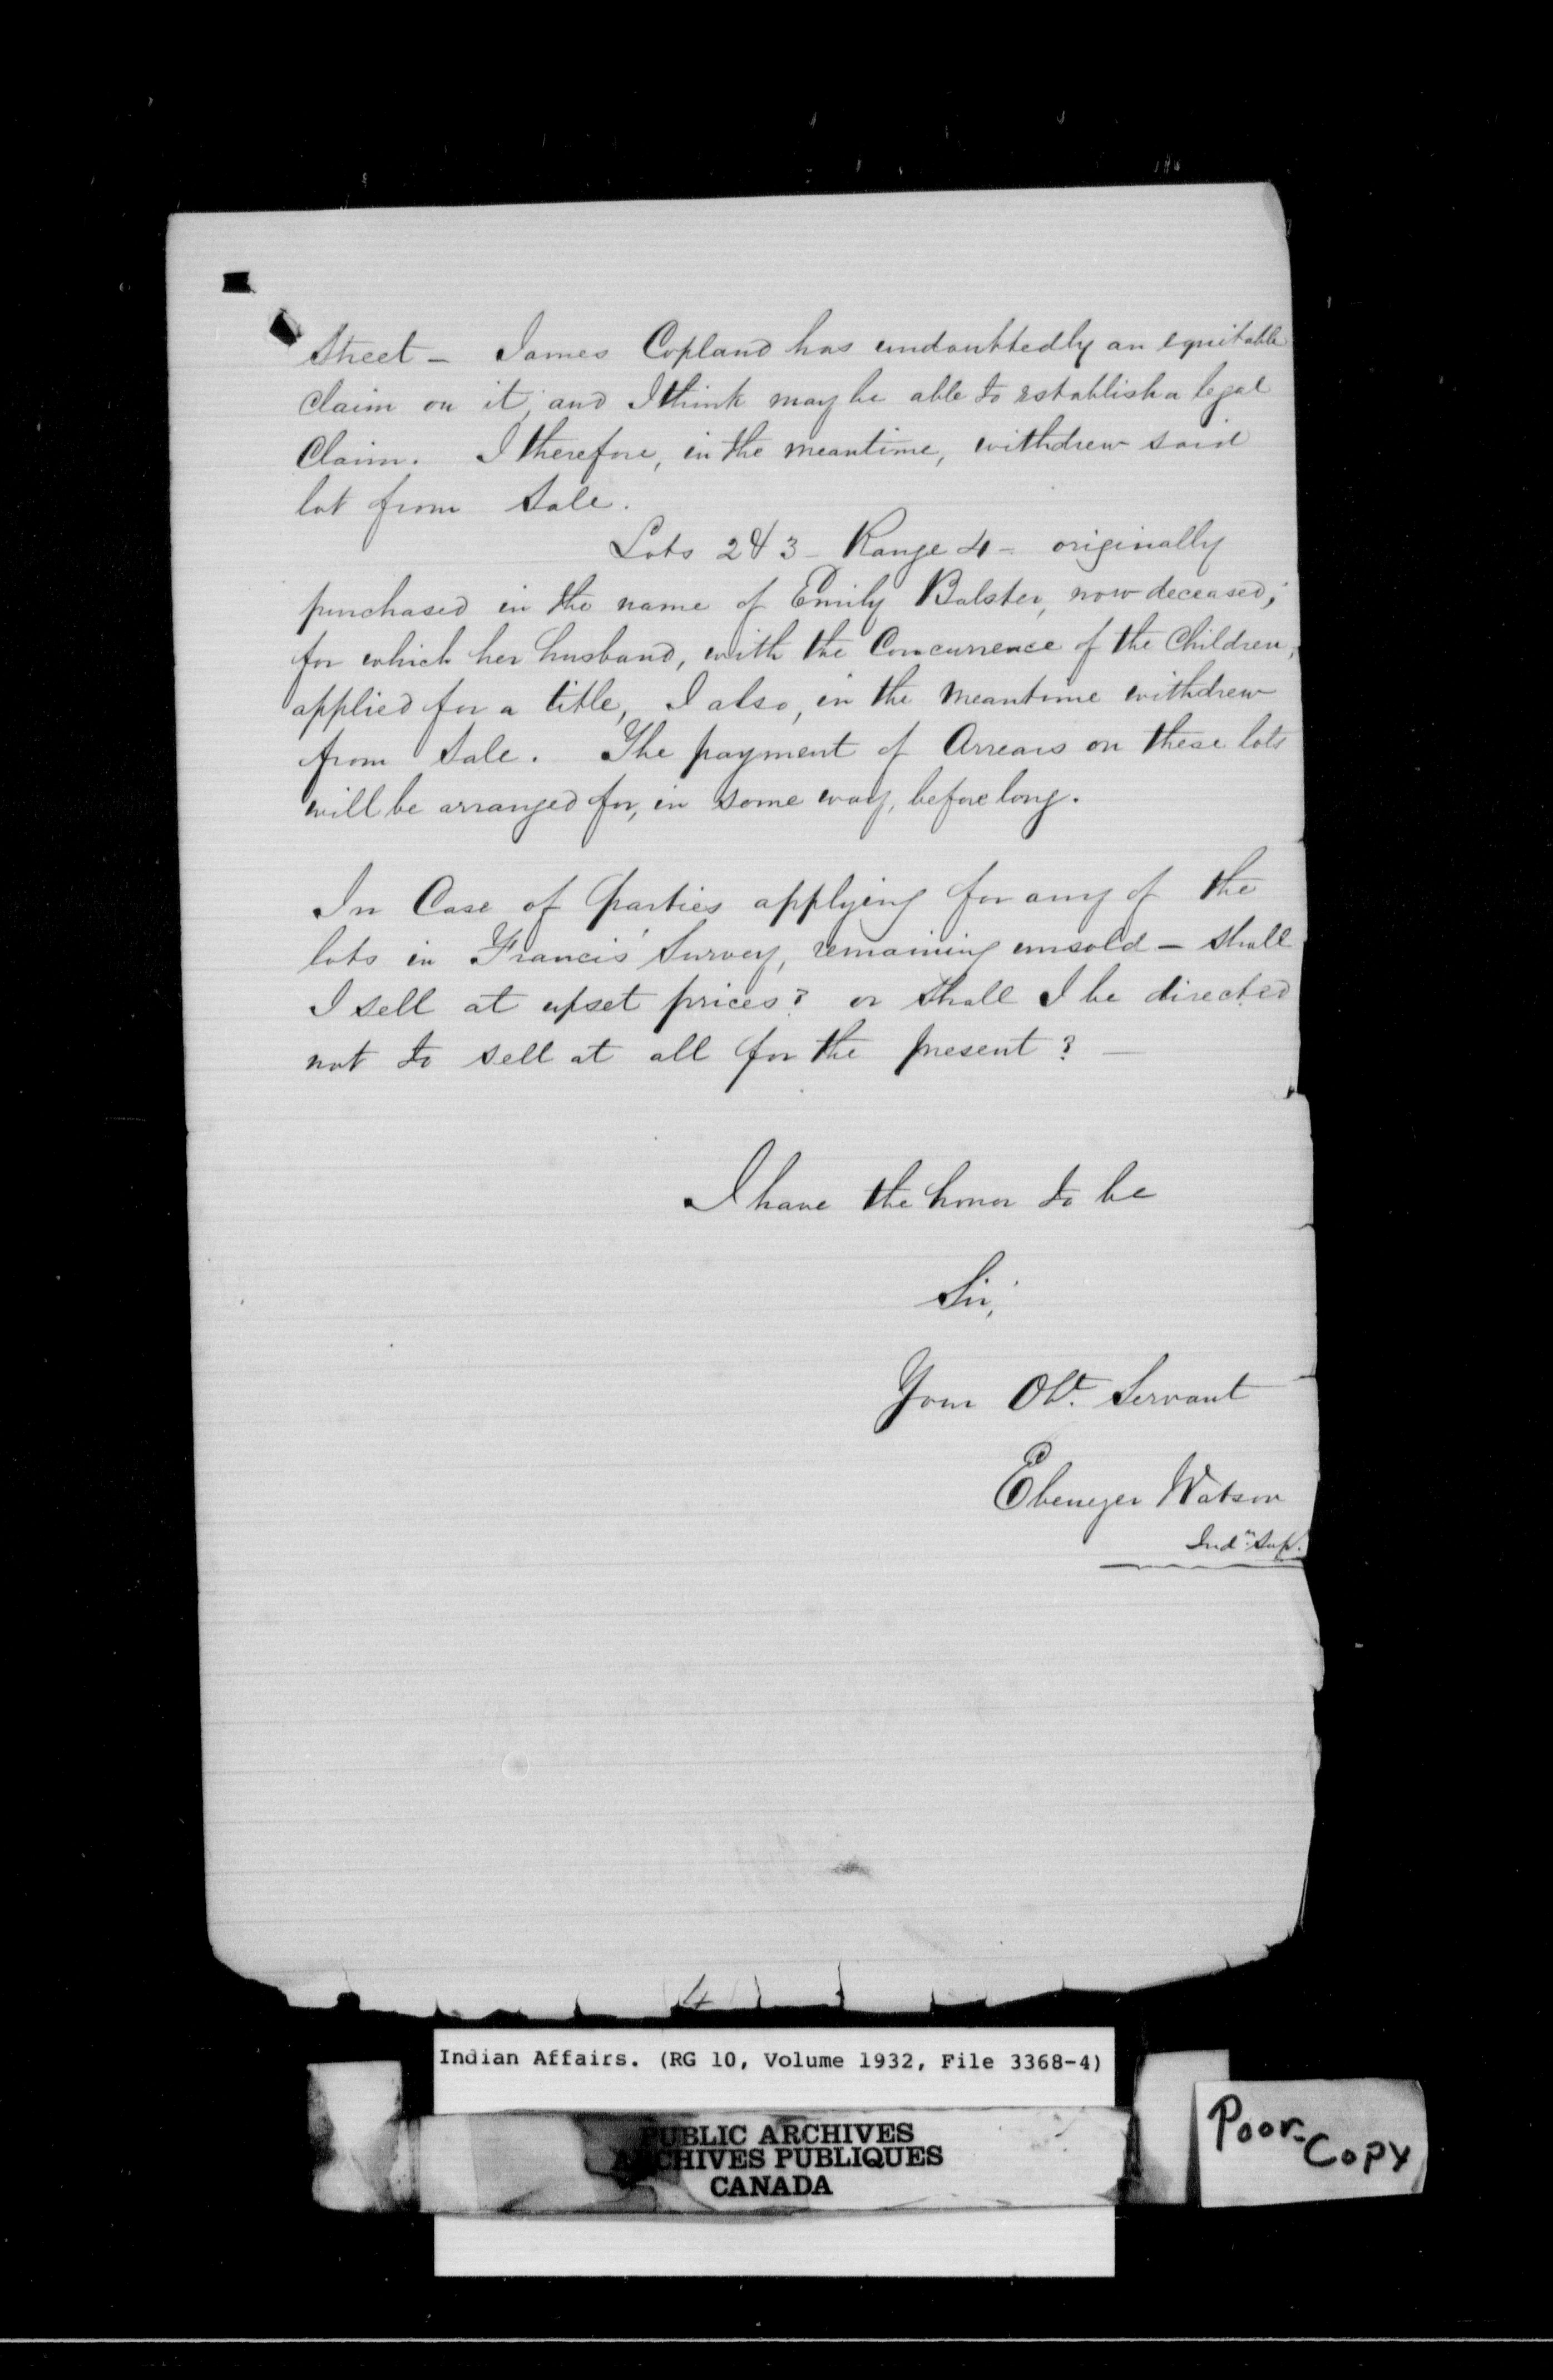 Street — James Copland has undoubtedly an equitable
Claim on it; and I think may be able to establish a legal
Claim. I therefore, in the meantime, withdrew said
lot from Sale.
Lots 2 & 3 - Range 4 - originally
purchased in the name of Emily Balster, now deceased;
for which her husband, with the Concurrence of the Children,
applied for a title, I also, in the meantime withdrew
from Sale. The payment of Arrears on these lots
will be arranged for, in some way, before long.
In Case of parties applying for any of the
lots in Francis' Survey, remaining unsold — shall
I sell at upset prices? or shall I be directed
not to sell at all for the present? —
I have the honor to be
Sir,
Your Obt. Servant
Ebenezer Watson
Indn. Sup.
4
Indian Affairs. (RG 10, Volume 1932, File 3368-4)
PUBLIC ARCHIVES
ARCHIVES PUBLIQUES
CANADA
Poor-
Copy